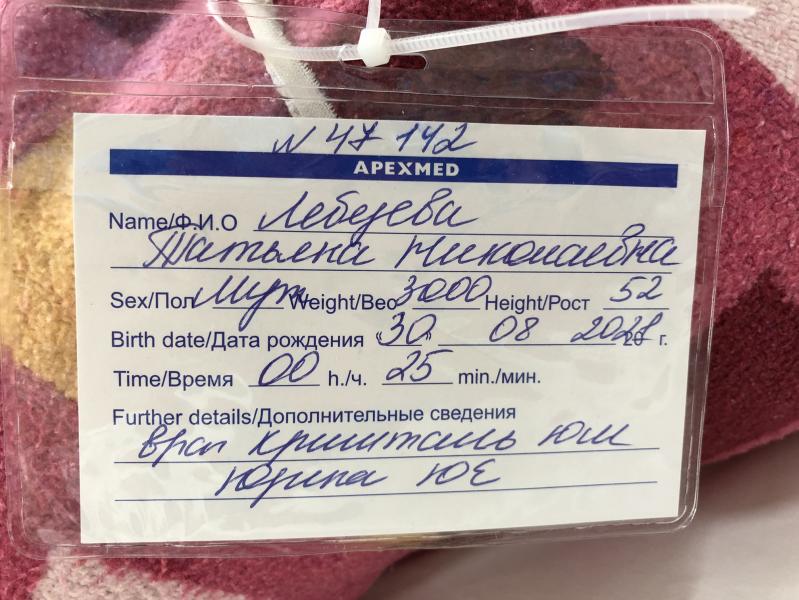 N 47 142
APEXMED
Name/Ф.И.О Лебедева
Татьяна Николаевна
Sex/Пол Муж Weight/Вес 3000 Height/Рост 52
Birth date/Дата рождения "30" 08 г.
Time/Время 00 h./ч. 25 min./мин.
Further details/Дополнительные сведения
врач Кришталь ЮМ
ЮЕ